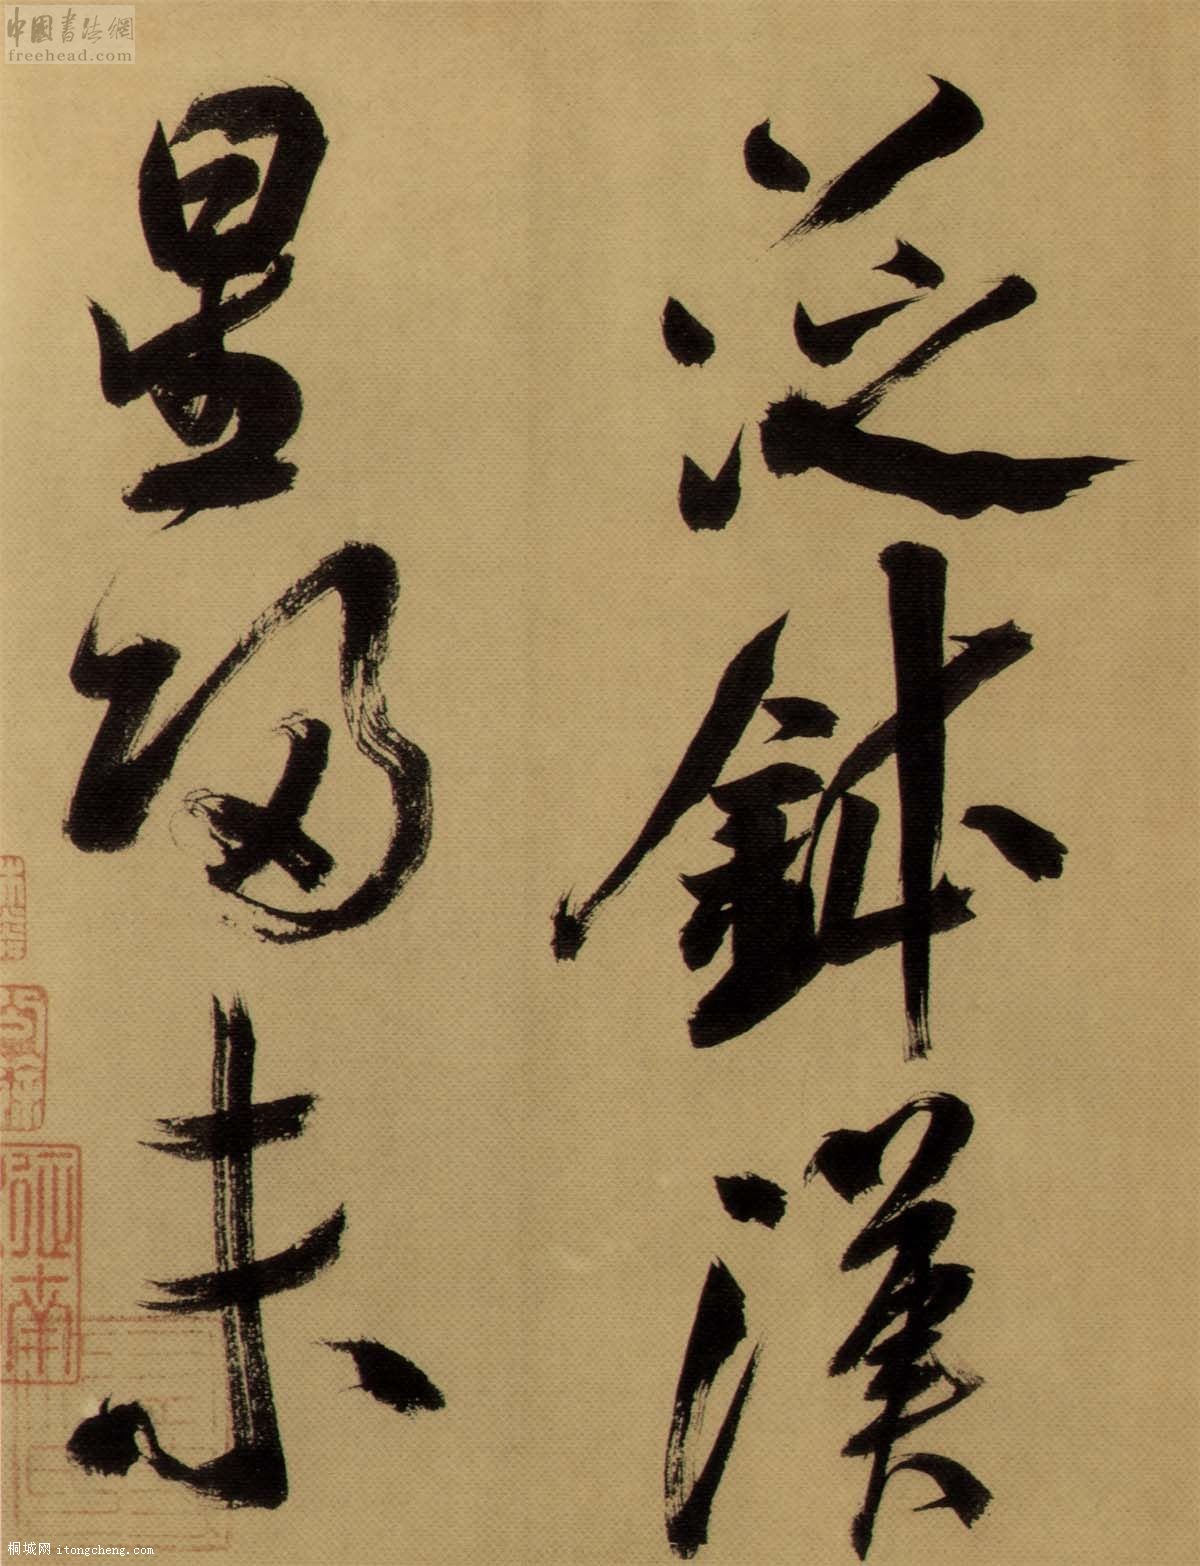 中國書法網
freehead.com
泛鉢漢
星歸未
桐城网 itongcheng.com